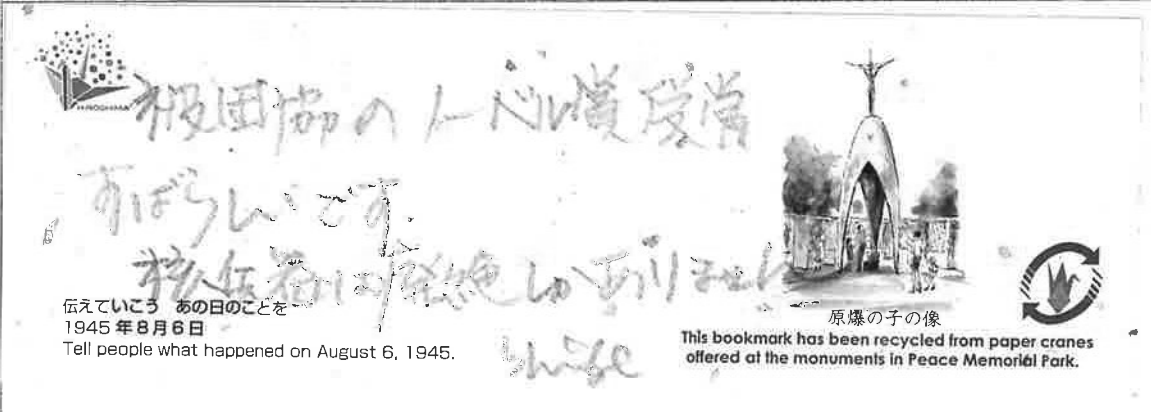 HIROSHIMA
被団協のノーベル賞受賞
すばらしいです.
核兵器は廃絶しかありません
伝えていこう あの日のことを
1945年8月6日
Tell people what happened on August 6, 1945.
原爆の子の像
This bookmark has been recycled from paper cranes
offered at the monuments in Peace Memorial Park.